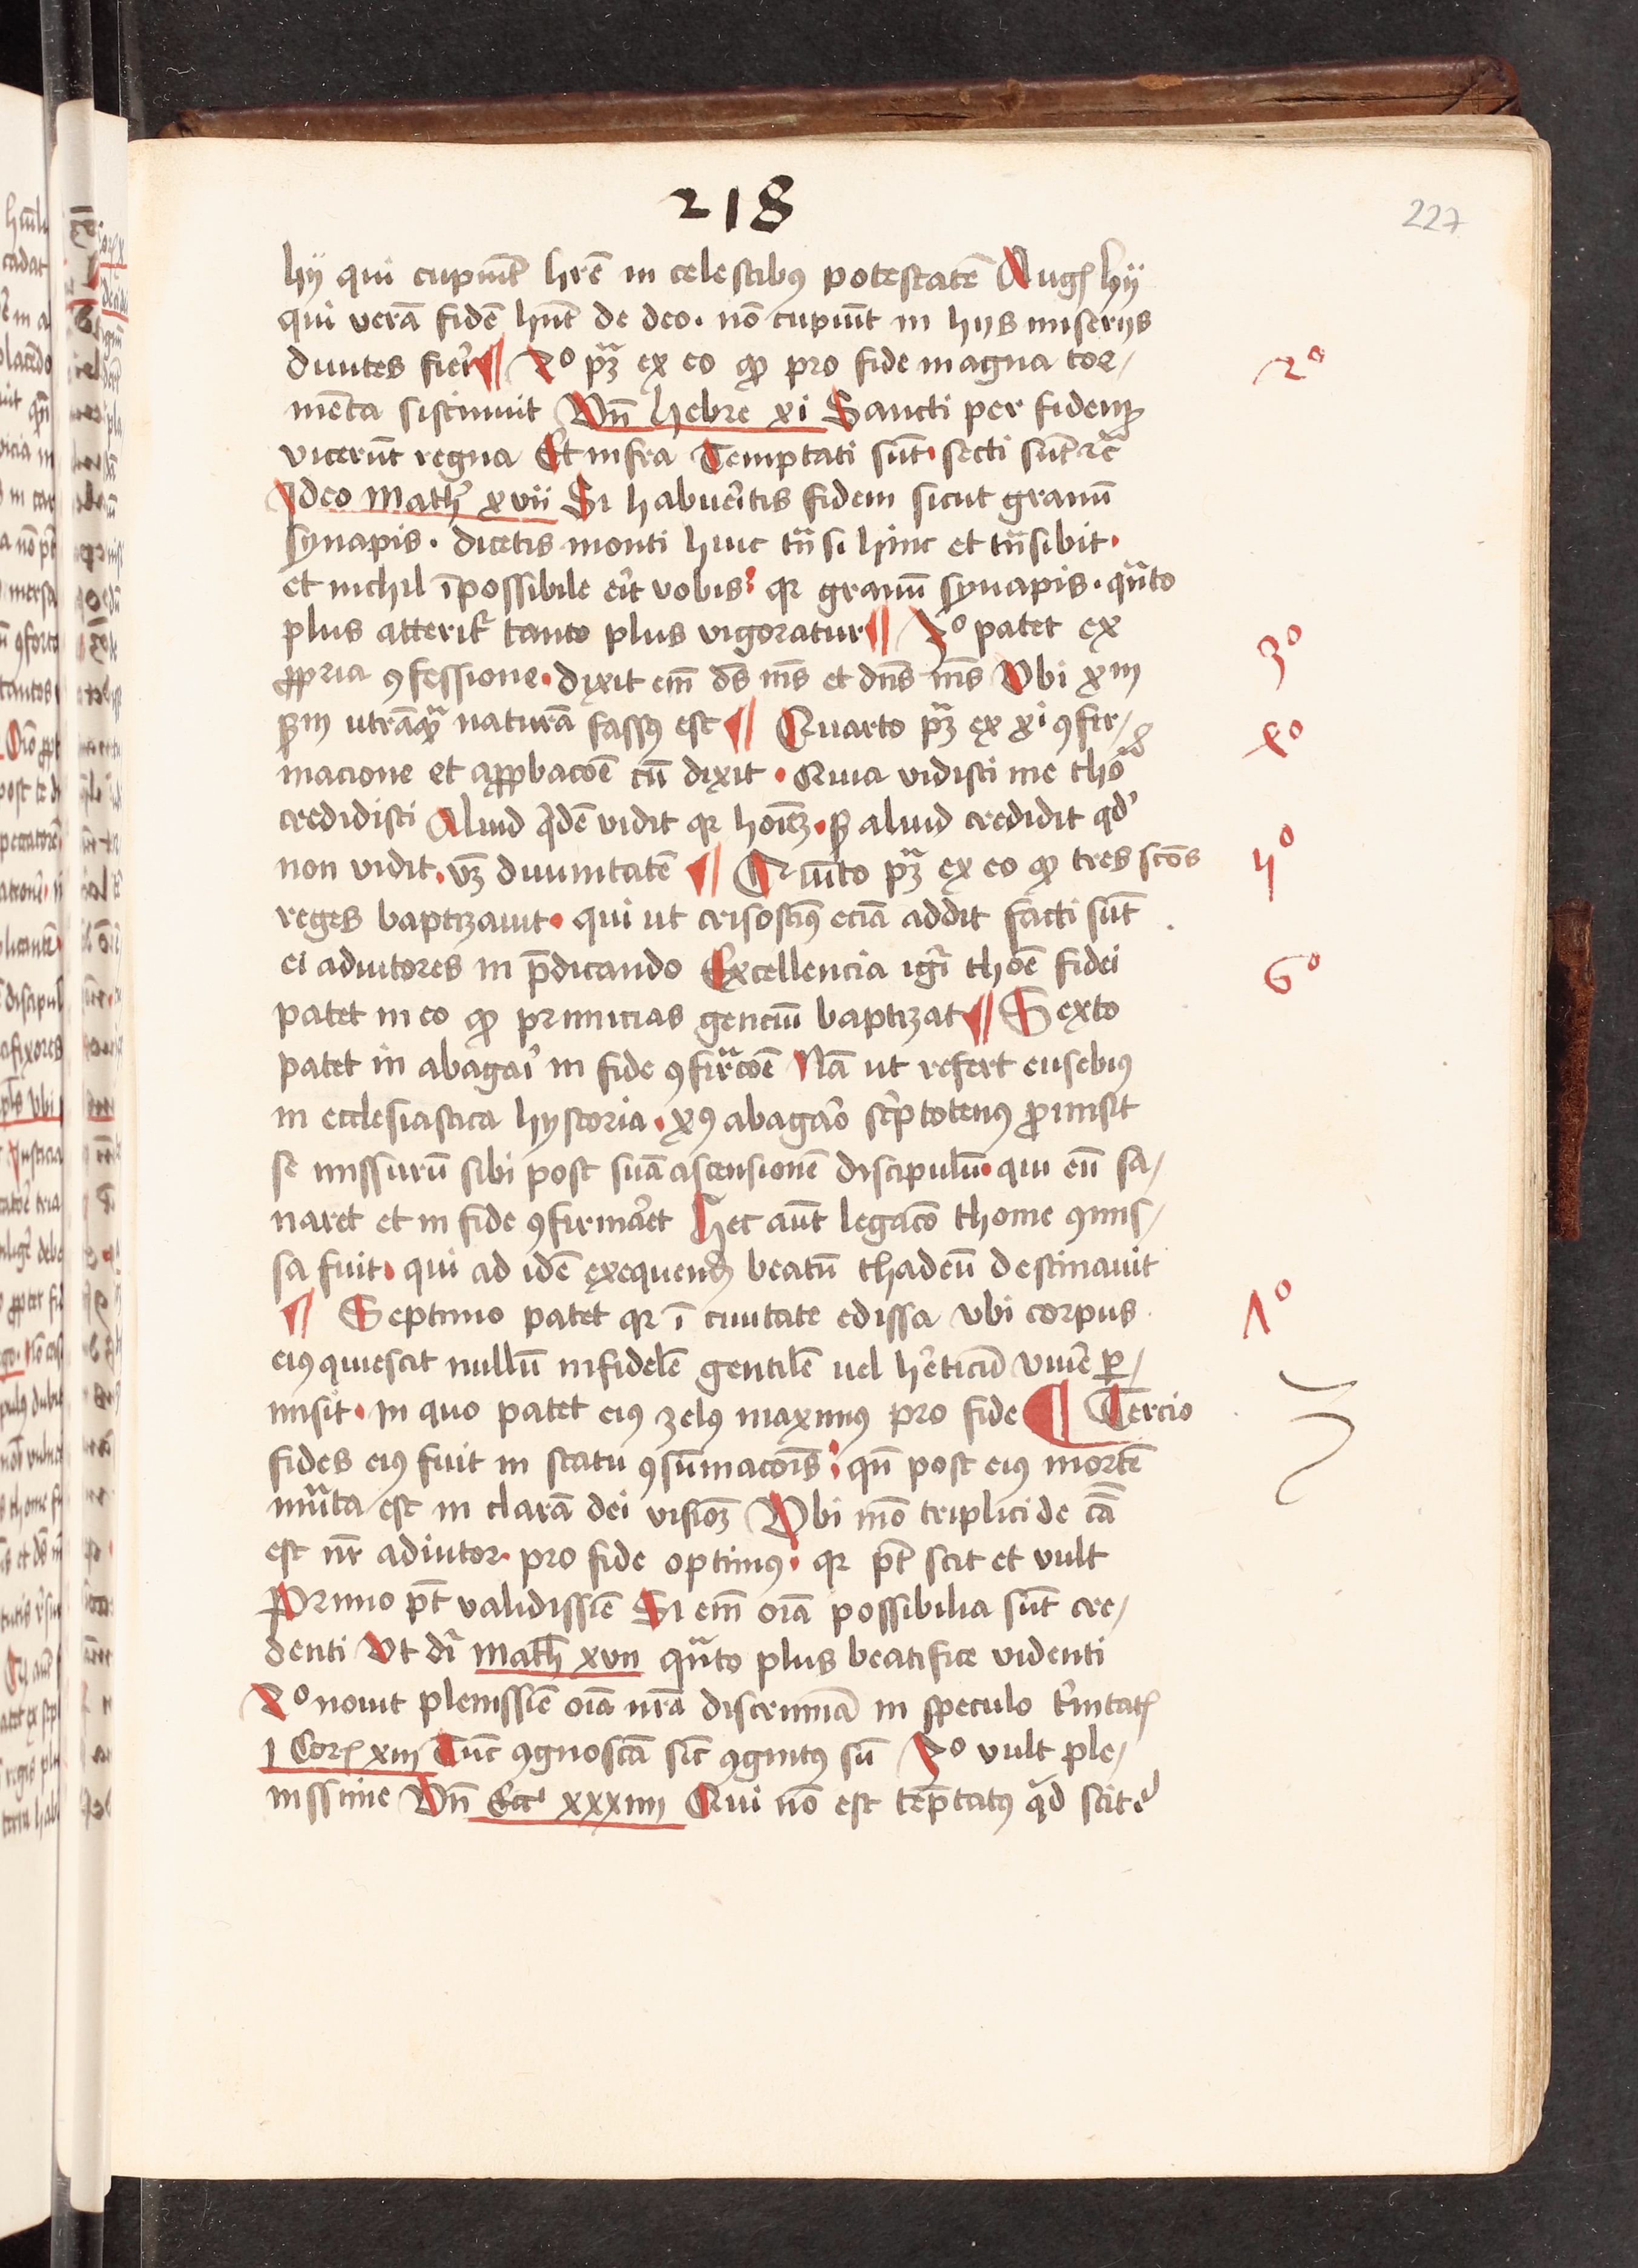 218
227
hij qui cupiūt hr̄e in celestibus potestatē Aug hij
qui verā fidē hn̄t de deo. nō cupiūt in hijs miserijs
diuites fieri ¶ 2o pꝫ ex eo ꝙ pro fide magna tor/
2o
mēta sustinuit Vn̄ hebre xi Sancti per fidem
vicerūt regna Et infra Temptati sūt. secti sūt ⁊c̄
Ideo Math xvii Si habueritis fidem sicut granū
synapis. dicetis monti huic trn̄si hinc et trn̄sibit.
et nichil īpossibile erit vobis: qr granū synapis. qn̄to
plus atteritur tanto plus vigoratur ¶ 3o patet ex
3o
ꝓpria ꝯfessione. dixit em̄ ds̄ ms̄ et dn̄s ms̄ Vbi xm̄
scdm̄ utrāqꝫ naturā fassus est ¶ Quarto pꝫ ex xi ꝯfir/
4o
macione et apꝓbacōe cū dixit. Quia vidisti me thoma
credidisti Aliud qdē vidit qr hoīeꝫ. sꝫ aliud credidit qd
non vidit. vꝫ diuinitatē ¶ Quīto pꝫ ex eo ꝙ tres scōs
5o
reges baptizauit. qui ut crisostius eciā addit facti sūt
ei adiutores in p̄dicando Excellencia igr̄ thōe fidei
6o
patet in eo ꝙ primicias genciū baptizat ¶ Sexto
patet in abagari in fide ꝯfirmacōe Nā ut refert eusebius
in ecclesiastica hystoria. xus abagaro scriptotenus promisit
se missurū sibi post suā ascensionē discipulū. qui eū sa/
naret et in fide ꝯfirmaret Hec aūt legacō thome ꝯmis/
sa fuit. qui ad idē exequendum beatū thadeū destinauit
¶ Septimo patet qr ī ciuitate edissa vbi corpus
7o
eius quiescit nullū infidelē gentilē uel hereticū viuere per/
misit. in quo patet eius zelus maximus pro fide ¶ Tercio
fides eius fuit in statu ꝯsūmacōis: qn̄ post eius mortē
mutata est in clarā dei visioꝫ Vbi mō triplici de cā
est nr̄ adiutor. pro fide optimus. qr pt̄ scit et vult
Primo pt̄ validissīe Si em̄ oīa possibilia sūt cre/
denti Vt dr̄ Math xvii qn̄to plus beatifice videnti
2o nouit plenissīe oīa nrā discriminā in speculo trinitatis
1 Cor xiii Tūc ꝯgnoscā sic̄ ꝯgnitus sū 3o vult ple/
nissime Vn̄ Ecci xxxiiii Qui nō est tēptatus qd scit ⁊